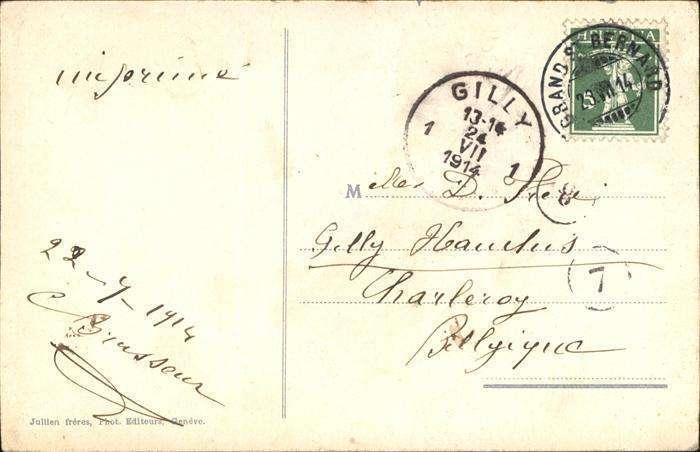 imprimé
22-7-1914
Brasseur
Jullien fréres, Phot. Editeurs, Genéve.
HELVETIA
GRAND ST BERNARD
23.VII.14
GILLY
13-14
24
VII
1914
1
1
M elle D.
Gilly Hauchis
Charleroy
Belgique
7